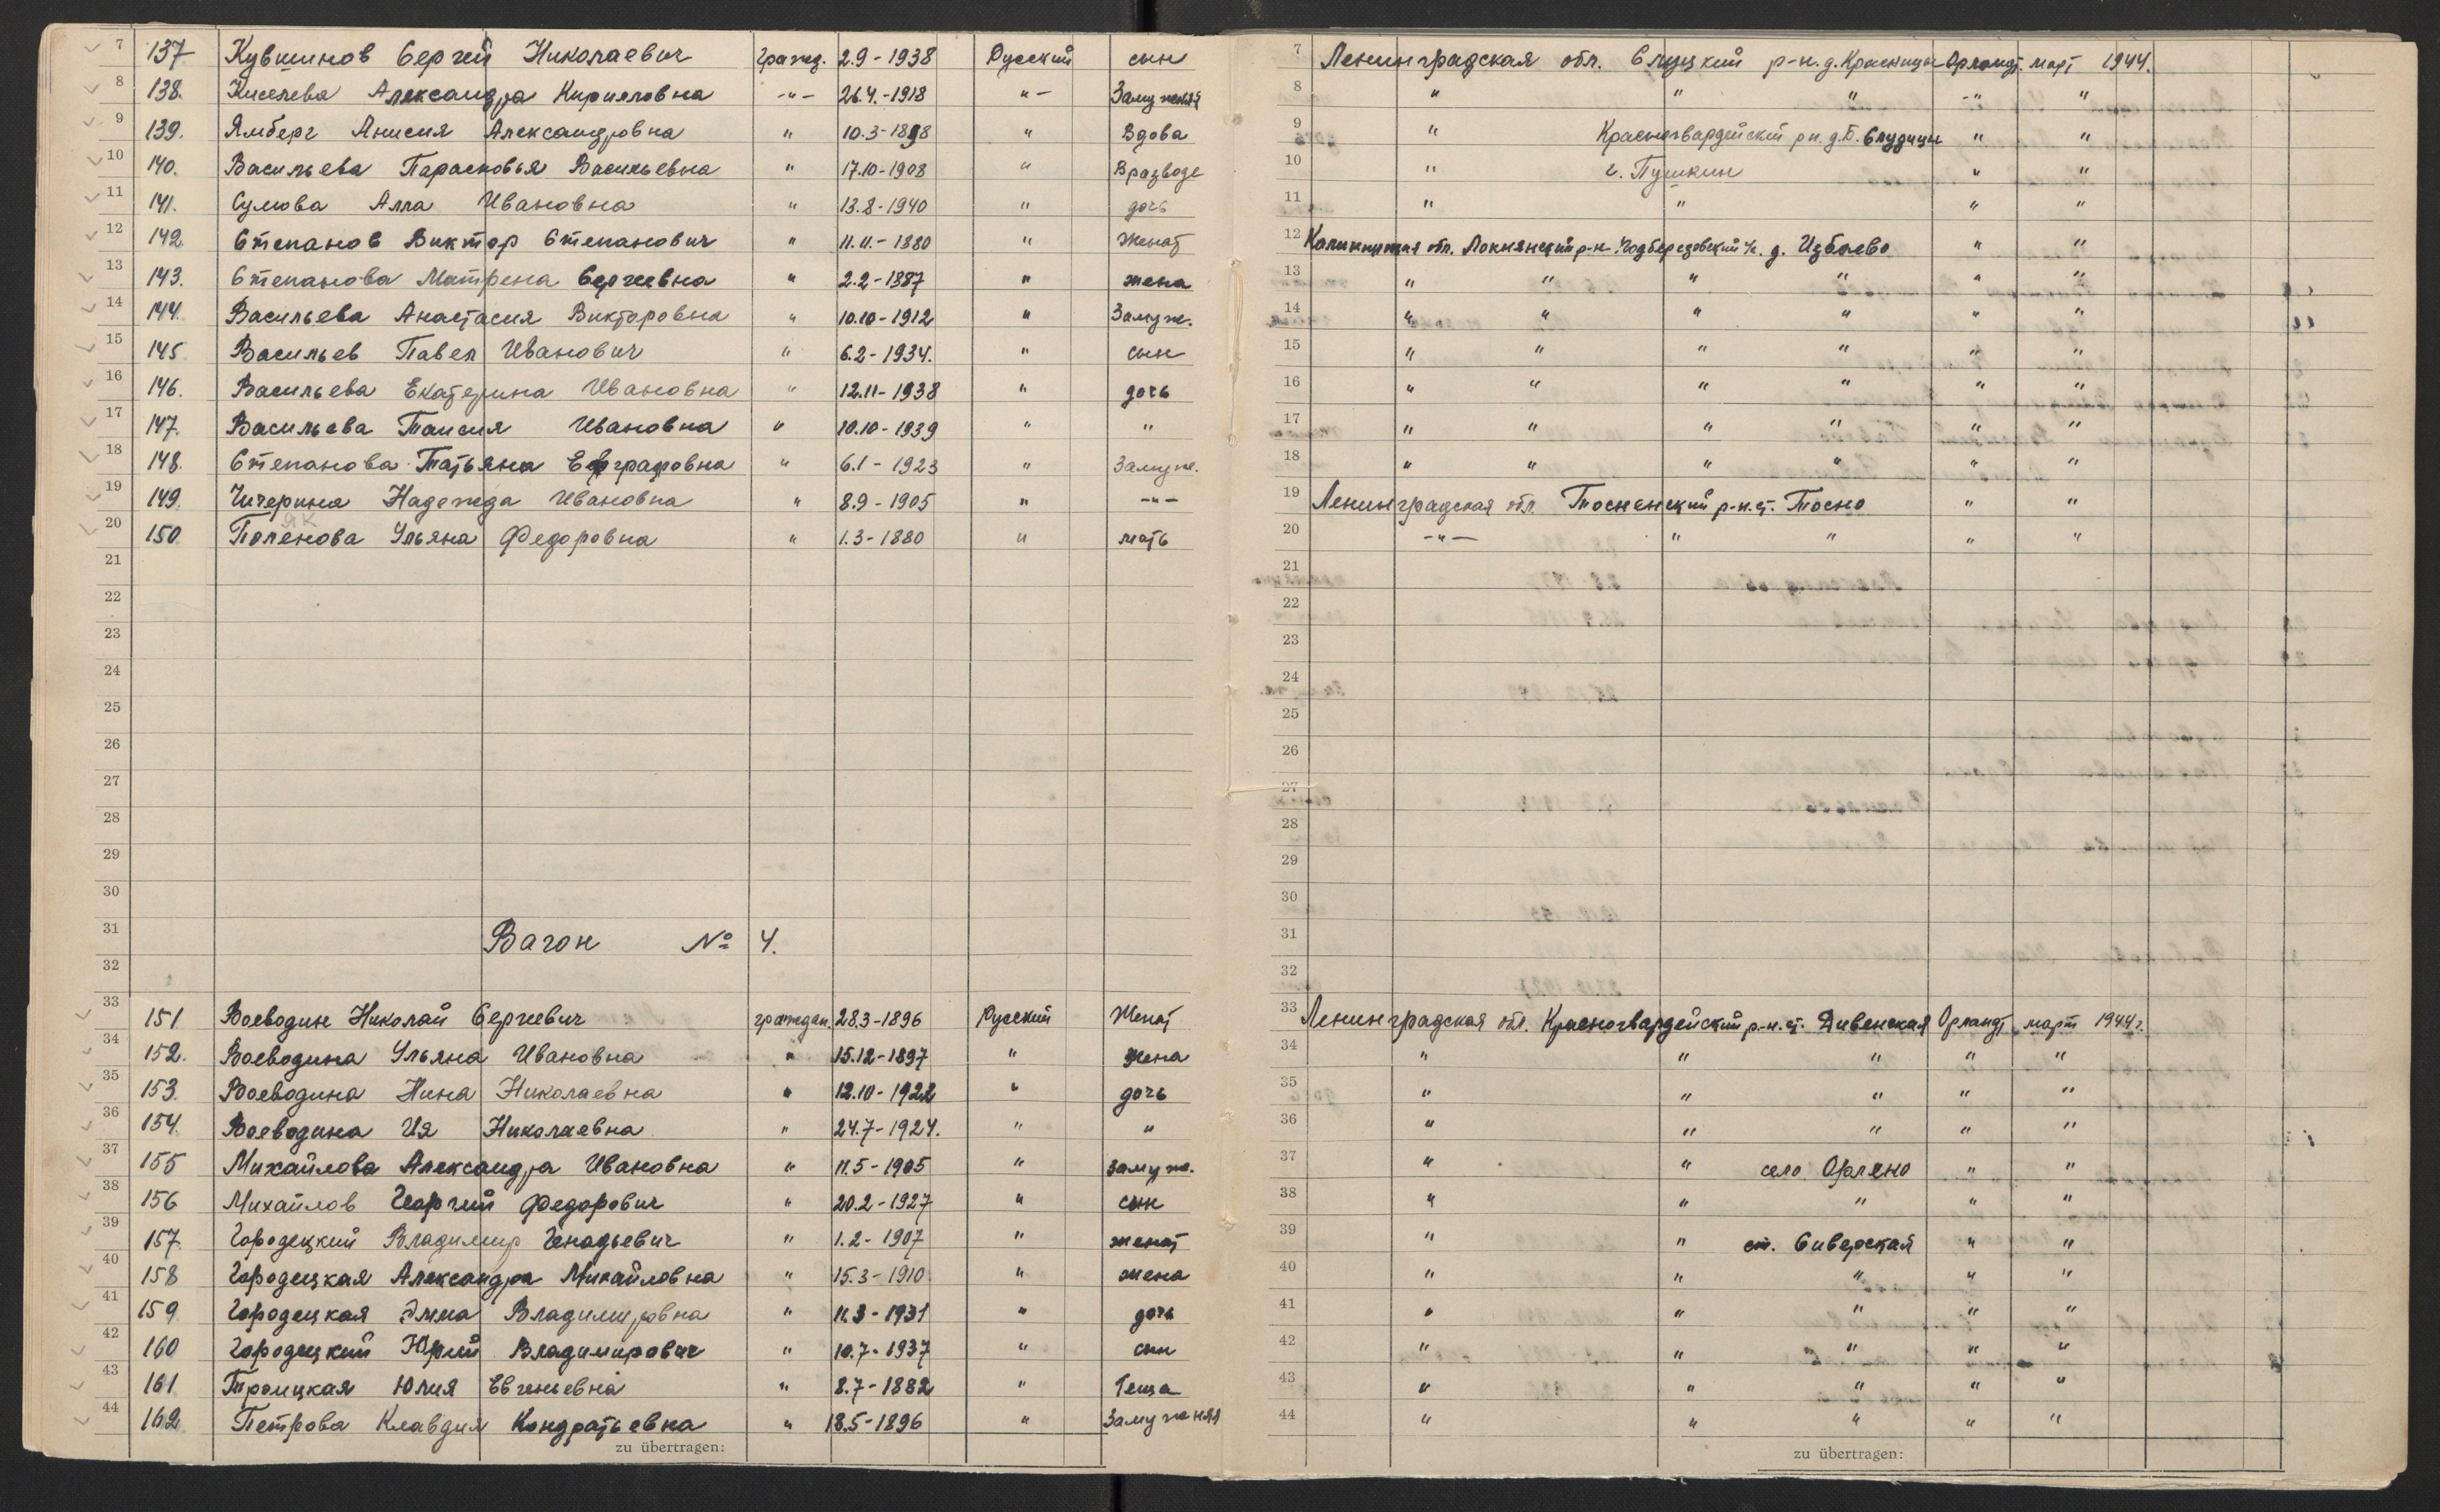 7 137 Кувшинов Сергей Николаевич гражд. 2.9-1938 Русский сын
8 138. Киселева Александра Кирилловна -"- 26.4.-1918 "- Замужняя
9 139. Ямберг Анисия Александровна " 10.3-1898 " Вдова
10 140. Васильева Парасковья Васильевна " 17.10-1908 " В разводе
11 141. Сумова Алла Ивановна " 13.8-1940 " дочь
12 142. Степанов Виктор Степанович " 11.11.-1880 " Женат
13 143. Степанова Матрена Сергеевна " 2.2-1887 " жена
14 144. Васильева Анастасия Викторовна " 10.10-1912 " Замуж.
15 145. Васильев Павел Иванович " 6.2-1934. " сын
16 146. Васильева Екатерина Ивановна " 12.11-1938 " дочь
17 147. Васильева Таисия Ивановна " 10.10-1939 " "
18 148. Степанова Татьяна Евграфовна " 6.1-1923 " Замуж.
19 149. Чичерина Надежда Ивановна " 8.9-1905 " -"-
20 150. Поленова Ульяна Федоровна " 1.3-1880 " мать
21
22
23
24
25
26
27
28
29
30
31 Вагон № 4.
32
33 151 Воеводин Николай Сергеевич граждан. 28.3-1896 Русский Женат
34 152. Воеводина Ульяна Ивановна " 15.12-1897 " жена
35 153. Воеводина Нина Николаевна " 12.10-1922 " дочь
36 154. Воеводина Ия Николаевна " 24.7-1924. " "
37 155 Михайлова Александра Ивановна " 11.5-1905 " замуж.
38 156 Михайлов Георгий Федорович " 20.2-1927 " сын
39 157. Городецкий Владимир Генадьевич " 1.2-1907 " женат
40 158 Городецкая Александра Михайловна " 15.3-1910 " жена
41 159. Городецкая Эмма Владимировна " 11.3-1931 " дочь
42 160 Городецкий Юрий Владимирович " 10.7-1937 " сын
43 161. Троицкая Юлия Евгеньевна " 8.7-1882 " Теща
44 162. Петрова Клавдия Кондратьевна " 18.5-1896 " Замужняя
zu übertragen:
7 Ленинградская обл. Слуцкий р-н. д. Красницы Орланд. март 1944.
8 " " " -" "
9 " Красногвардейский рн. д. Б. Слудицы " "
10 " г. Пушкин " "
11 " " " "
12 Калининская обл. Локнянский р-н. Подберезовский с/с. д. Избоево " "
13 " " " " " "
14 " " " " " "
15 " " " " " "
16 " " " " " "
17 " " " " " "
18 " " " " " "
19 Ленинградская обл. Тосненский р-н. ст. Тосно " "
20 -"- " " " "
21
22
23
24
25
26
27
28
29
30
31
32
33 Ленинградская обл. Красногвардейский р-н. ст. Дивенская Орланд март 1944г.
34 " " " " "
35 " " " " "
36 " " " " "
37 " " село Орлено " "
38 " " " " "
39 " " ст. Сиверская " "
40 " " " " "
41 " " " " "
42 " " " " "
43 " " " " "
44 " " " " "
zu übertragen: